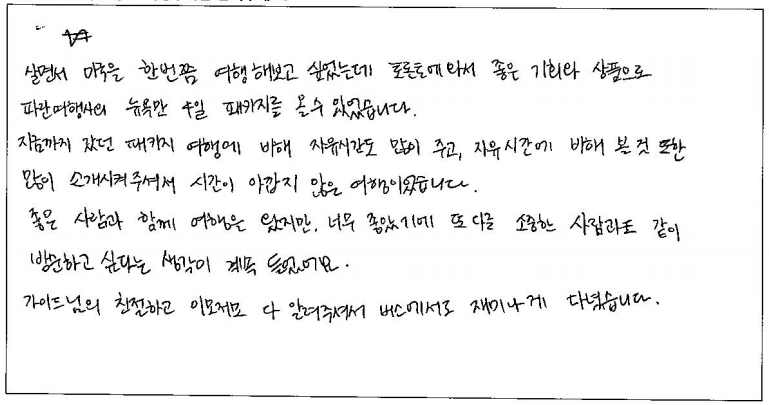 살면서 미국을 한번쯤 여행해보고 싶었는데 토론토에 와서 좋은 기회와 상품으로
파란여행사의 뉴욕만 4일 패키지를 올 수 있었습니다.
지금까지 갔던 패키지 여행에 비해 자유시간도 많이 주고, 자유시간에 비해 본 것 또한
많이 소개시켜주셔서 시간이 아깝지 않은 여행이었습니다.
좋은 사람과 함께 여행은 왔지만, 너무 좋았기에 또 다른 소중한 사람과도 같이
방문하고 싶다는 생각이 계속 들었어요.
가이드님의 친절하고 이모저모 다 알려주셔서 버스에서도 재미나게 다녔습니다.